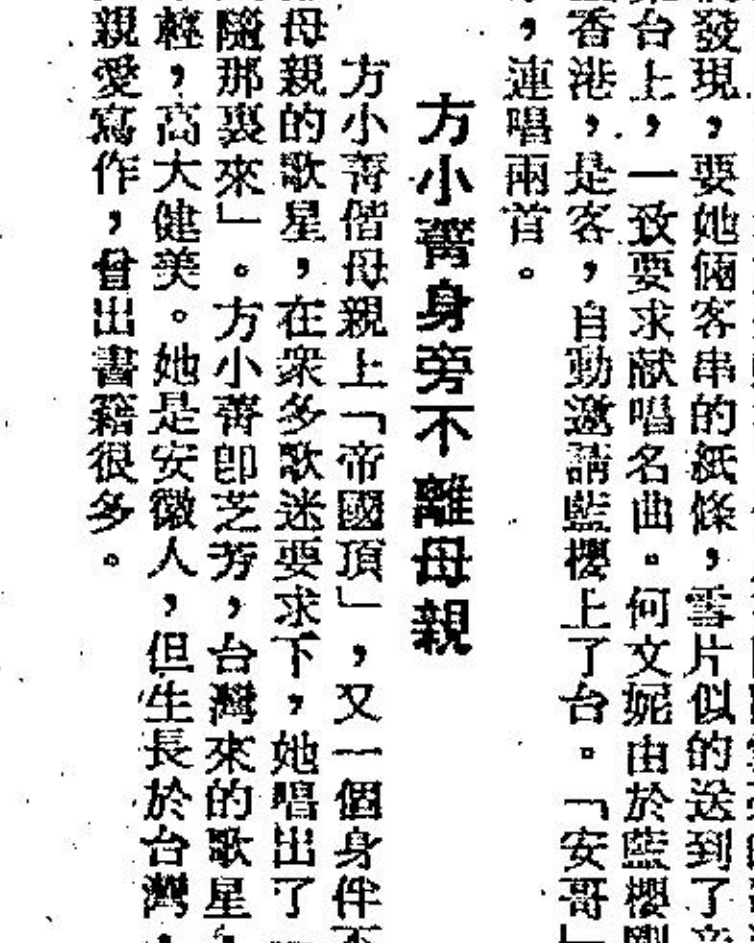 發現，要她倆客串的紙條，雪片似的送到了
台上，一致要求献唱名曲。何文妮由於藍櫻剛
香港，是客，自動邀請藍櫻上了台。「安哥」
，連唱兩首。
方小菁身旁不離母親
方小菁偕母親上「帝國頂」，又一個身伴不
母親的歌星，在衆多歌迷要求下，她唱出了
隨那裏來」。方小菁即芝芳，台灣來的歌星，
輕，高大健美。她是安徽人，但生長於台灣，
親愛寫作，曾出書籍很多。